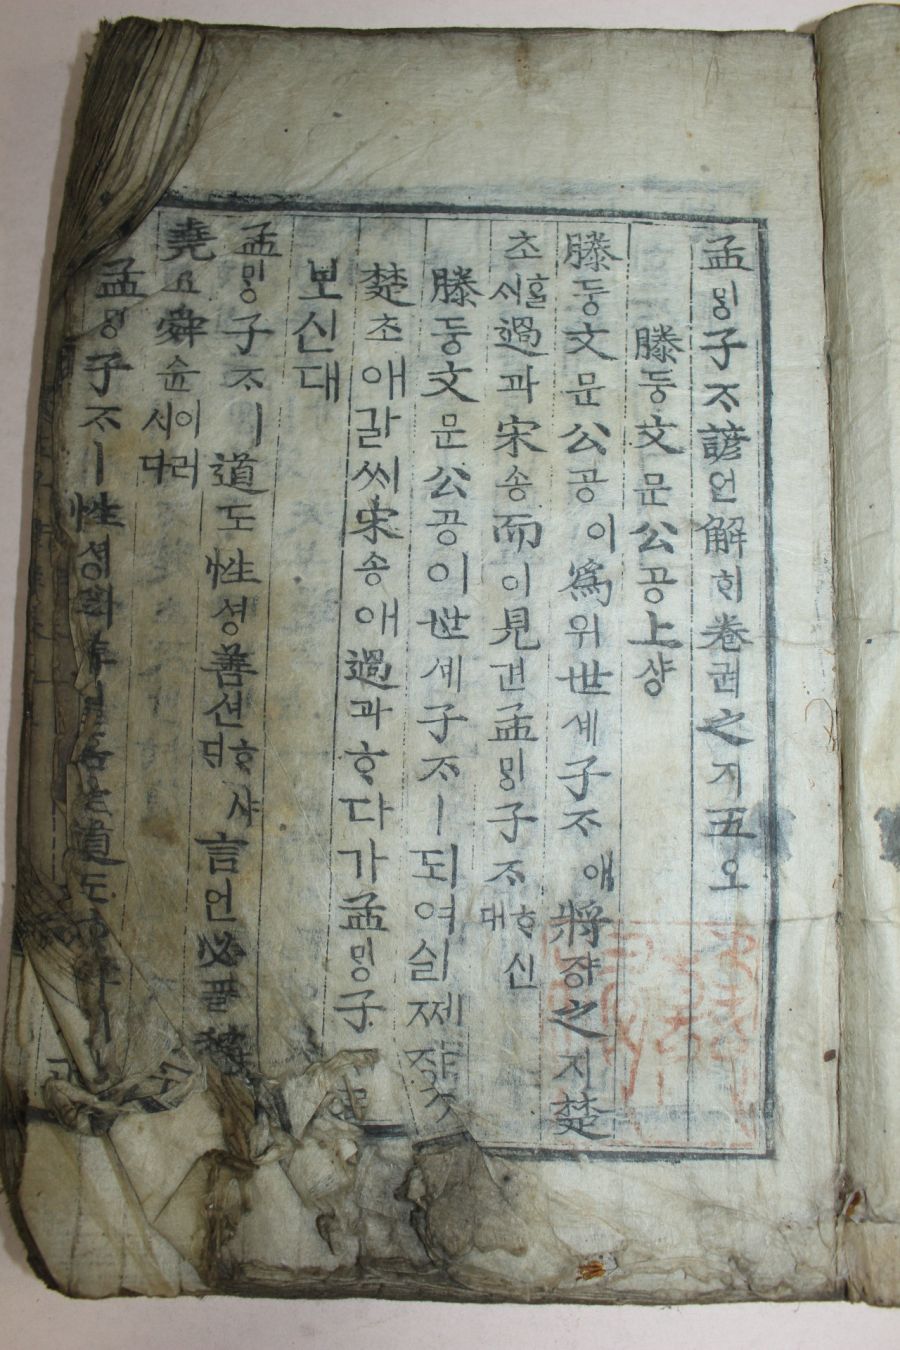 孟ᄆᆡᆼ子ᄌᆞ諺언解ᄒᆡ卷권之지五오
滕등文문公공上샹
滕등文문公공이爲위世셰子ᄌᆞ애將쟝之지楚
초ᄒᆞᆯ시過과宋송而이見견孟ᄆᆡᆼ子ᄌᆞᄒᆞ신대
滕등文문公공이世셰子ᄌᆞㅣ되여실ᄶᅦ쟝ᄎᆞ
楚초애갈씨宋송애過과ᄒᆞ다가孟ᄆᆡᆼ子
보신대
孟ᄆᆡᆼ子ᄌᆞㅣ道도性셩善션ᄒᆞ샤ᄃᆡ言언必필
堯요舜슌이러시다
孟ᄆᆡᆼ子ᄌᆞㅣ性셩의道도